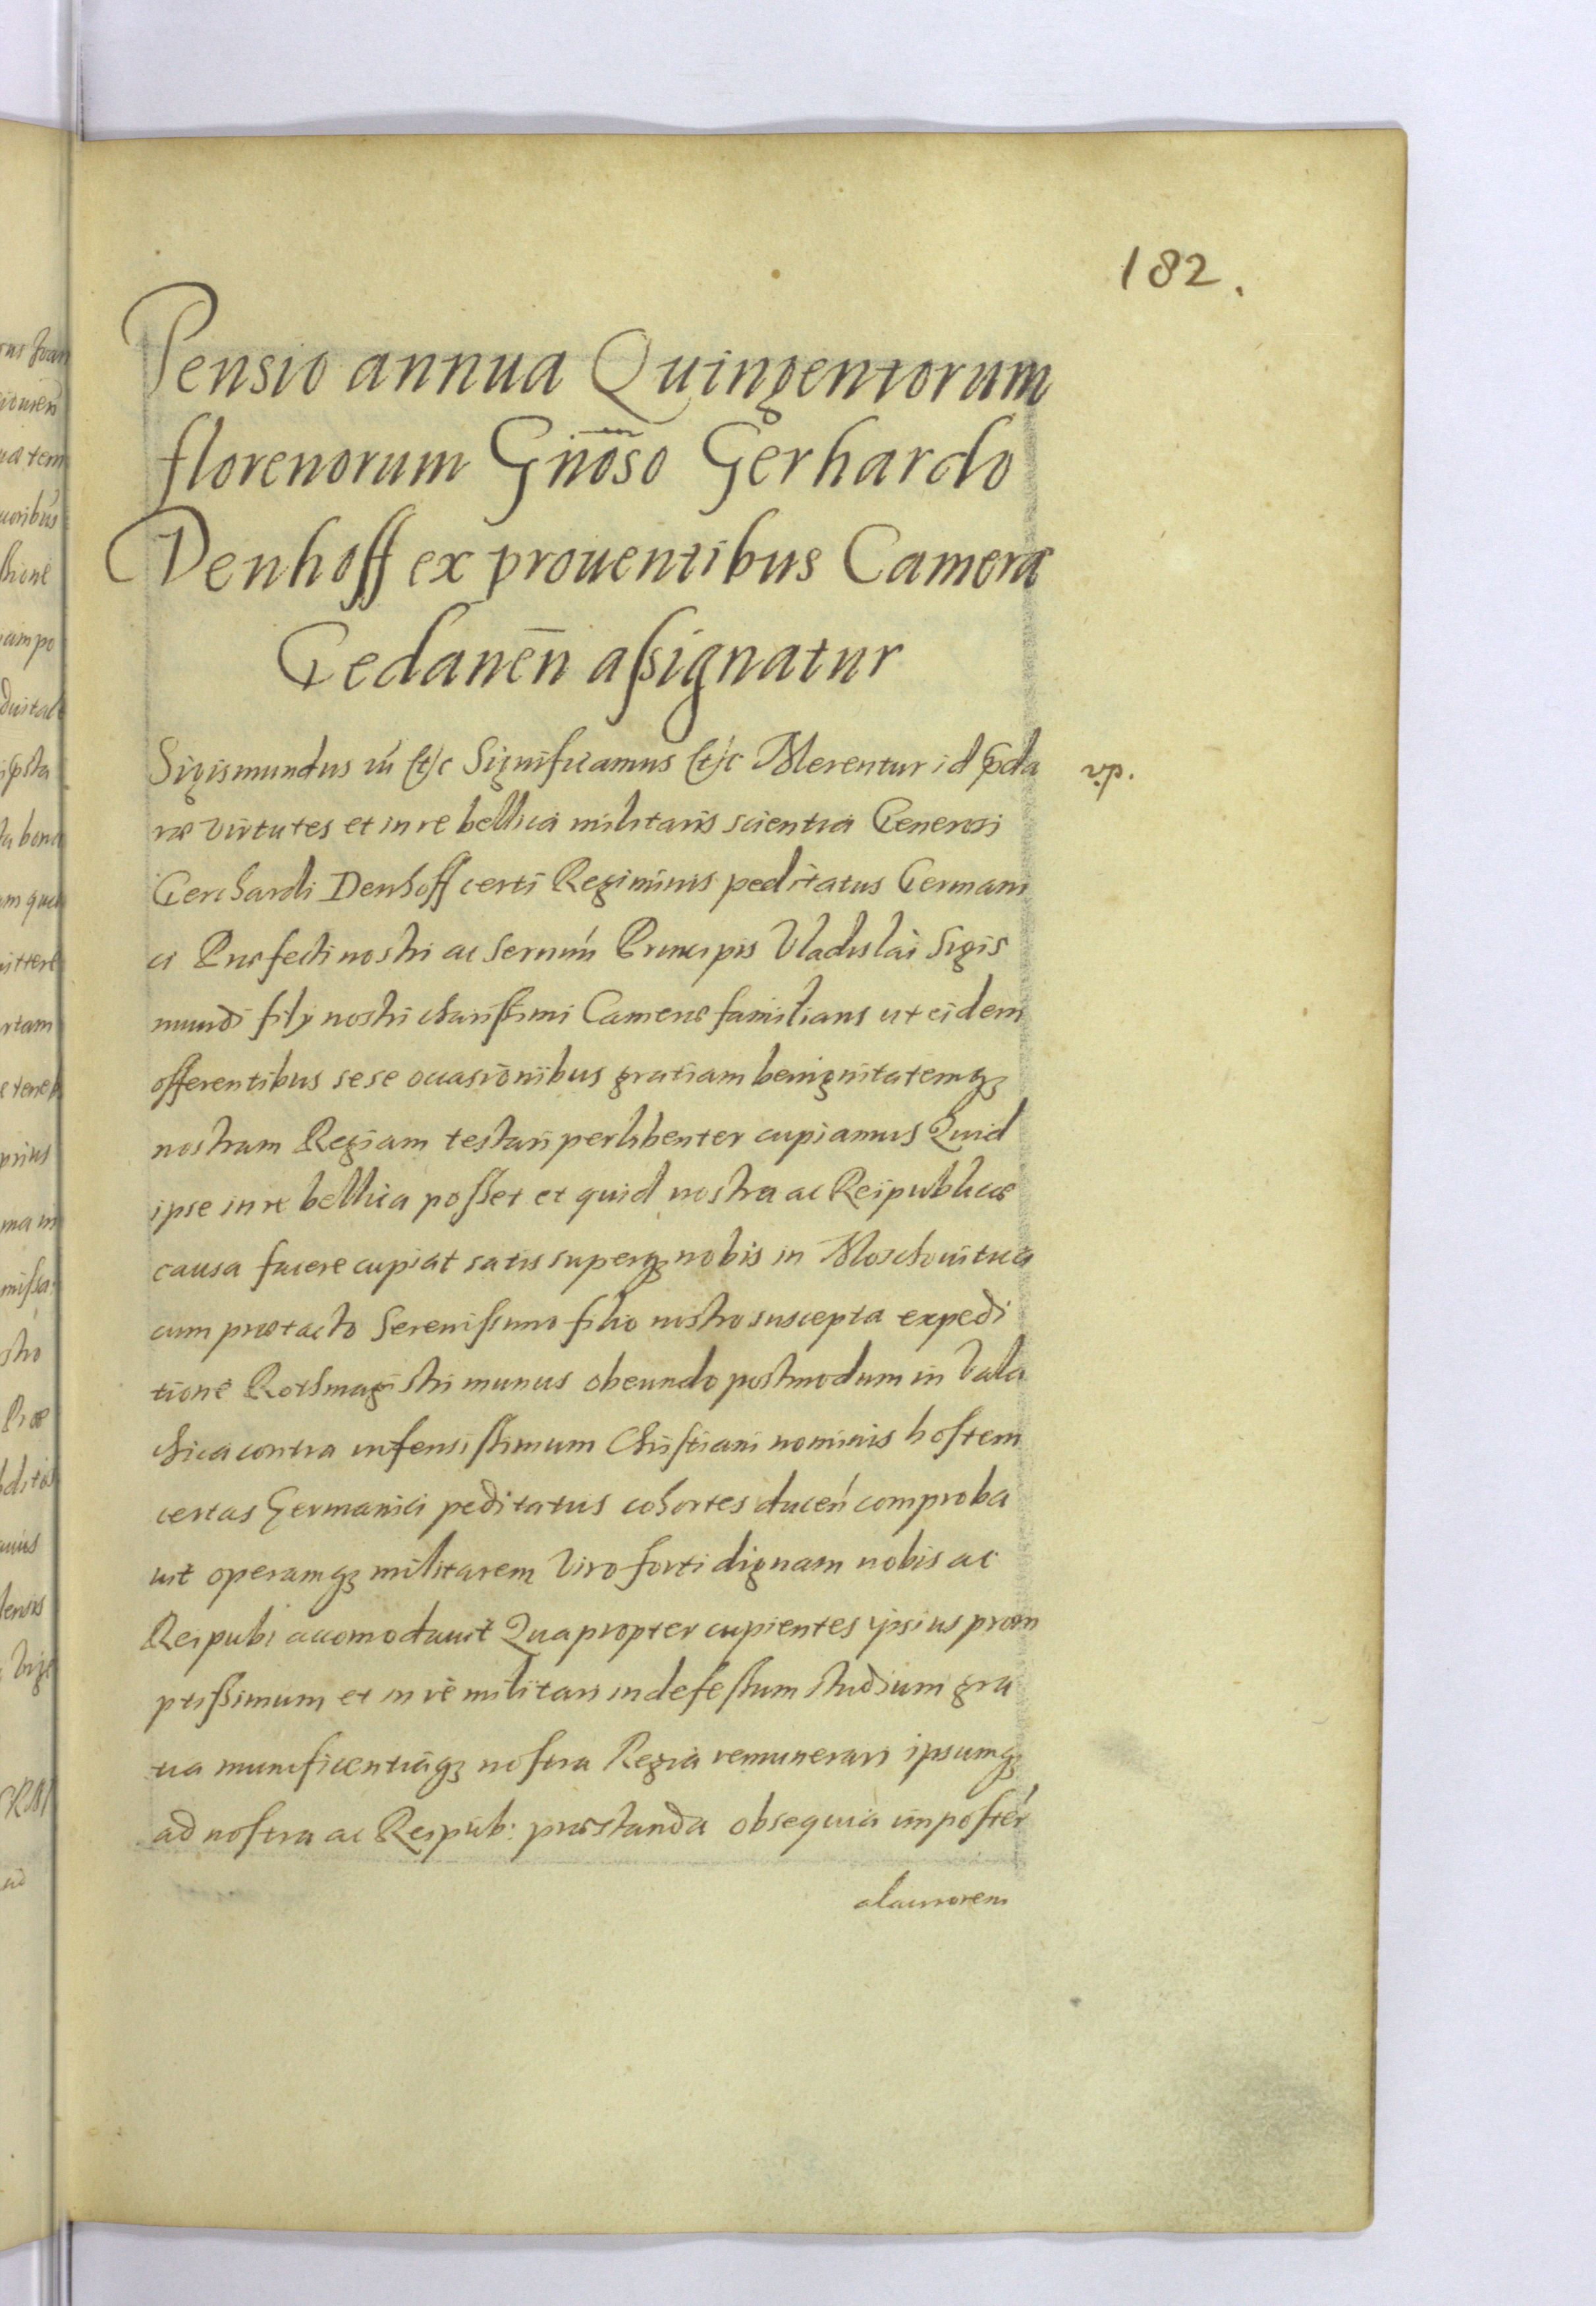 182.
Pensio annua Quingentorum
florenorum Gn̄oso Gerhardo
Denhoff ex prouentibus Cameræ
Gedanen̄ aſsignatur
Sigismundus iii etc Significamus etc Merentur id p̱cla
v.p.
ræ virtutes et in re bellica militaris scientia Generosi
Gerchardi Denhoff certi Regiminis peditatus Germani
ci Præfecti nostri ac Sermi Principis Vladislai Sigis
mundi filij nostri chariſsimi Cameræ familiaris ut eidem
offerentibus sese occasionibus gratiam benignitatemqꝫ
nostram Regiam testari perlibenter cupiamus Quid
ipse in re bellica poſset et quid nostra ac Reipublicæ
causa facere cupiat satis superqꝫ nobis in Moschouitica
cum prætacto Sereniſsimo filio nostro suscepta expedi
tione Rothmagistri munus obeundo postmodum in Vala
chica contra infensiſsimum Chriſtiani nominis hoſtem
certas Germanici peditatus cohortes ducen̄ comproba
uit operamqꝫ militarem viro forti dignam nobis ac
Reipubl accomodauit Quapropter cupientes ipsius prom
ptiſsimum et in re militari indefeſsum studium gra
tia munificentiaqꝫ noſtra Regia remunerari ipsumqꝫ
ad noſtra ac Reipub: præstanda obsequia impoſter̄
alacriorem